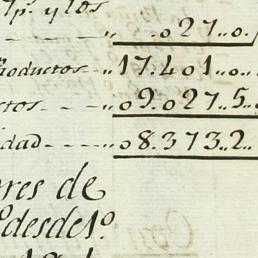 yp.s y los
" .o27..o.
Productos .. 17.401..o..
ctos - - - .. o9.o27..5..
idad - - - .. o8.373..2..
ores de
desde 1.º